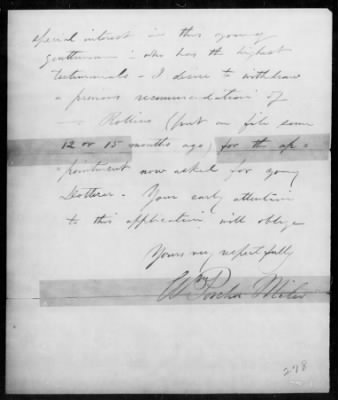 special interest in this young
gentleman - who has the highest
testimonials - I desire to withdraw
a previous recommendation of
— Rollins (put on file some
12 or 15 months ago) for the ap-
pointment now asked for young
Dotterer - Your early attention
to this application will oblige
Yours very respectfully
Wm Porcher Miles
278